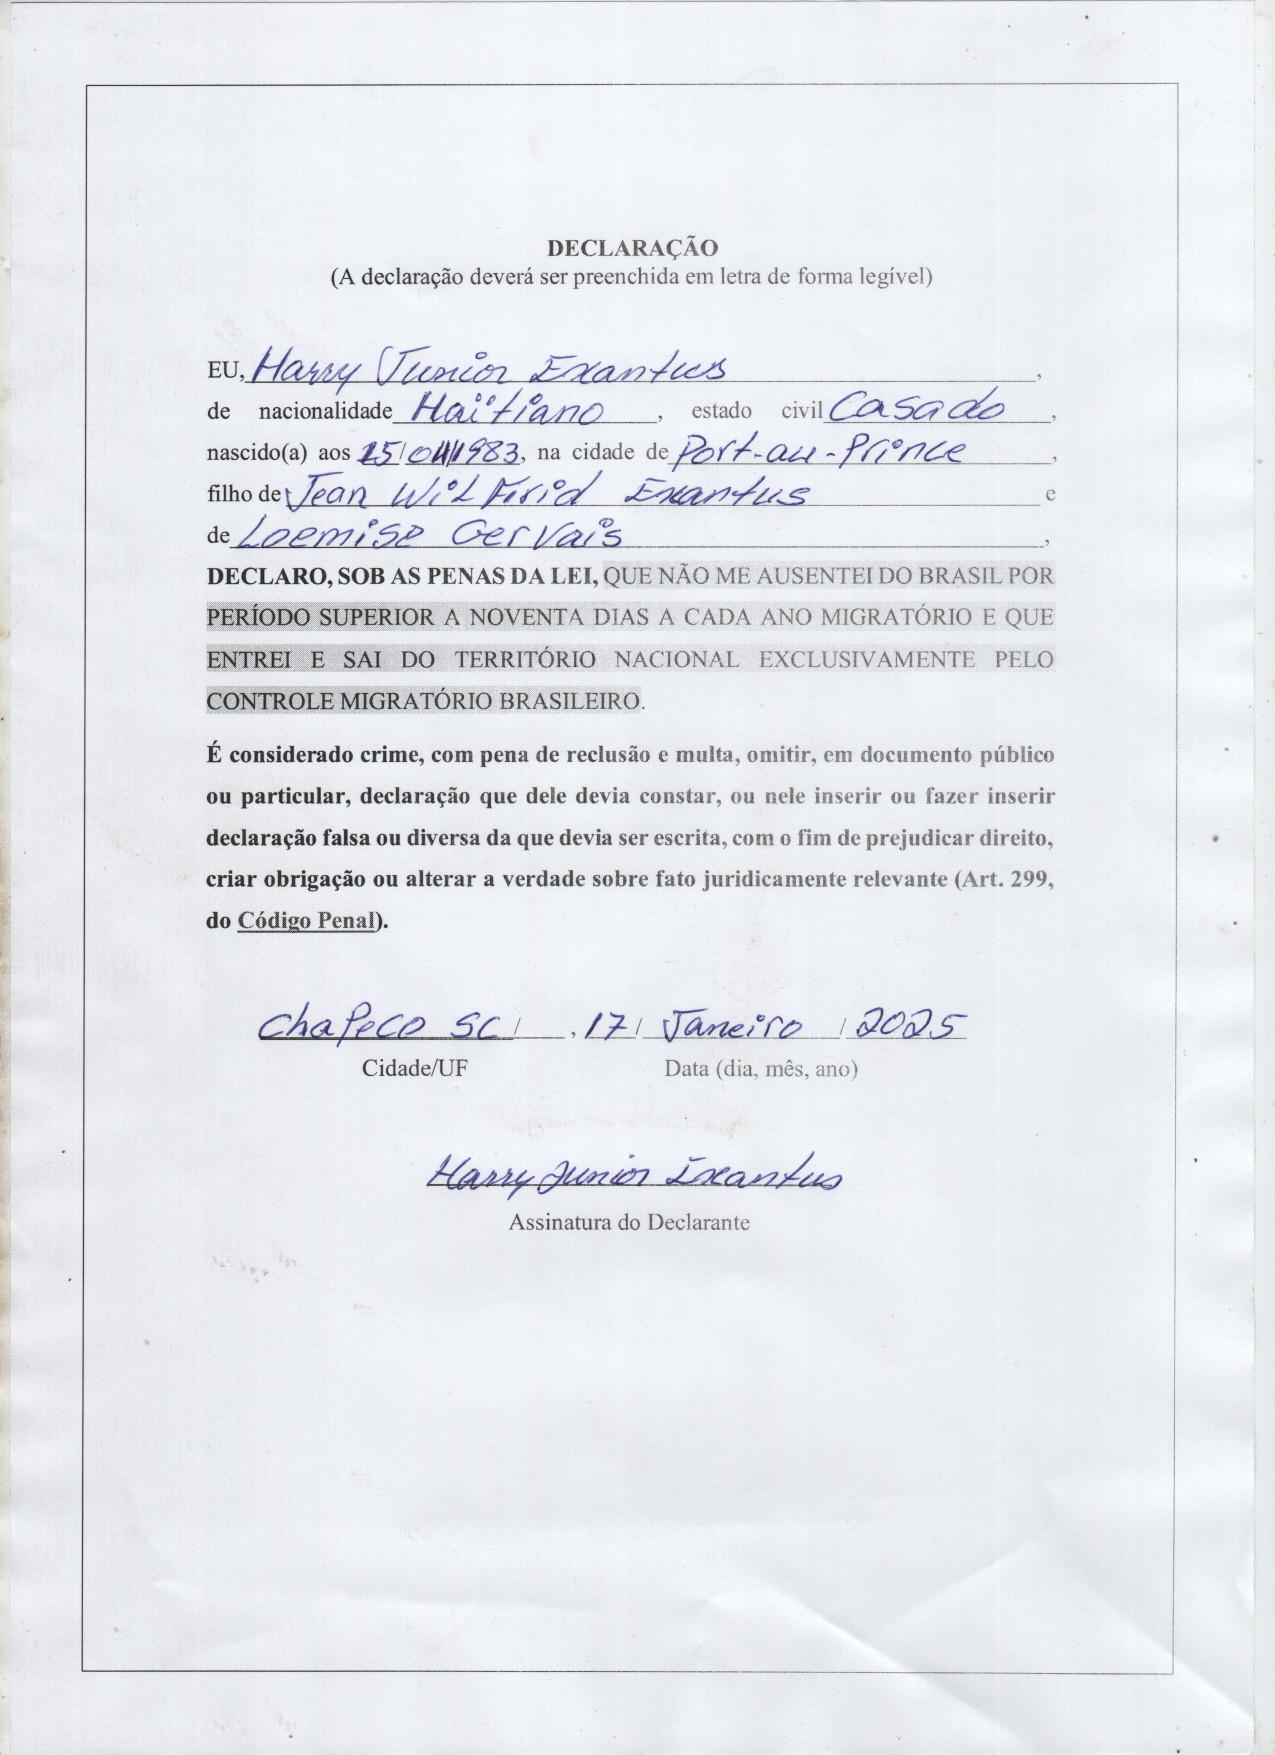 DECLARAÇÃO
(A declaração deverá ser preenchida em letra de forma legível)
EU, Harry Junior Exantus,
de nacionalidade Haïtiano, estado civil Casado,
nascido(a) aos 15/04/1983, na cidade de Port-au-Prince,
filho de Jean Wilfrid Exantus e
de Loemise Gervais,
DECLARO, SOB AS PENAS DA LEI, QUE NÃO ME AUSENTEI DO BRASIL POR
PERÍODO SUPERIOR A NOVENTA DIAS A CADA ANO MIGRATÓRIO E QUE
ENTREI E SAI DO TERRITÓRIO NACIONAL EXCLUSIVAMENTE PELO
CONTROLE MIGRATÓRIO BRASILEIRO.
É considerado crime, com pena de reclusão e multa, omitir, em documento público
ou particular, declaração que dele devia constar, ou nele inserir ou fazer inserir
declaração falsa ou diversa da que devia ser escrita, com o fim de prejudicar direito,
criar obrigação ou alterar a verdade sobre fato juridicamente relevante (Art. 299,
do Código Penal).
Chapeco SC / , 17 / Janeiro / 2025
Cidade/UF Data (dia, mês, ano)
Harry Junior Exantus
Assinatura do Declarante